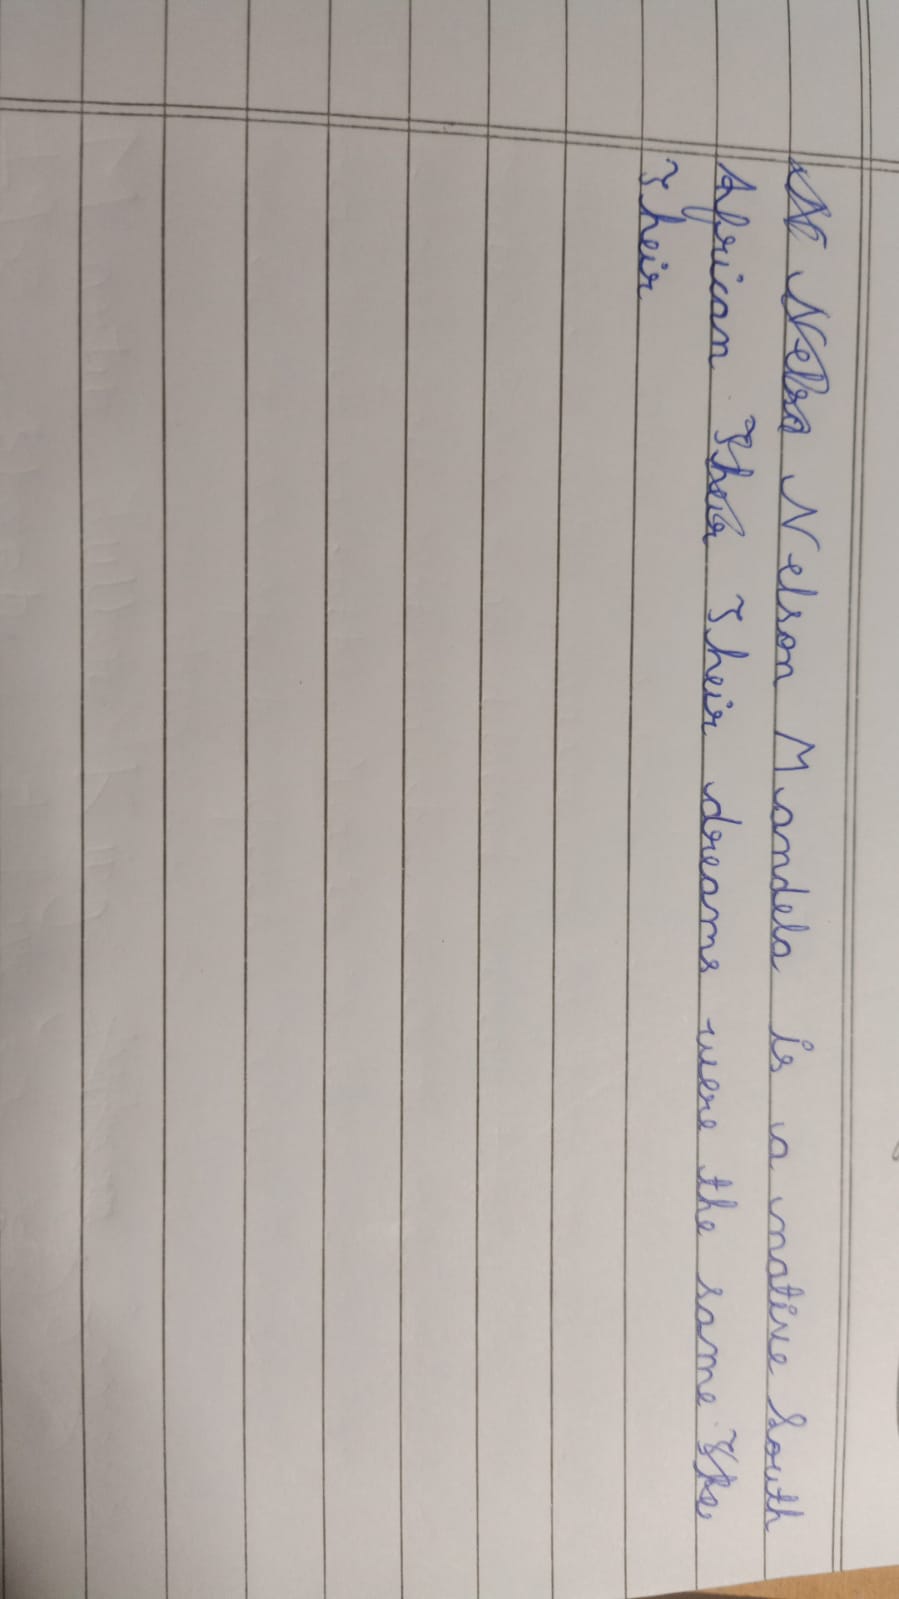 N Nelso Nelson Mandela is a native South
African Their Their dreams were the same The
Their